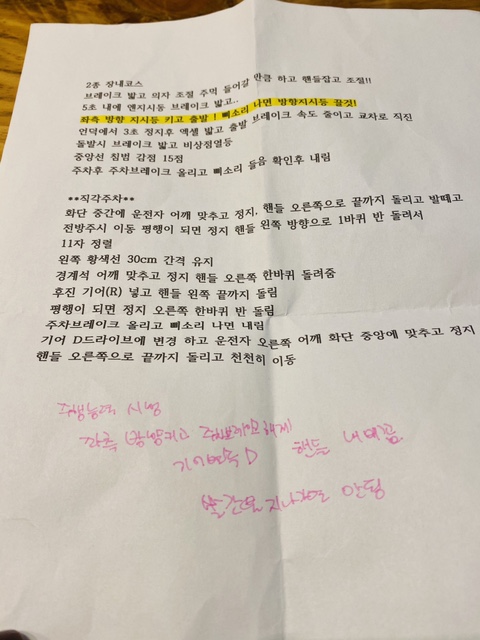 2종 장내코스
브레이크 밟고 의자 조절 주먹 들어갈 만큼 하고 핸들잡고 조절!!
5초 내에 엔지시동 브레이크 밟고..
좌측 방향 지시등 키고 출발 ! 삐소리 나면 방향지시등 끌것!
언덕에서 3초 정지후 액셀 밟고 출발 브레이크 속도 줄이고 교차로 직진
돌발시 브레이크 밟고 비상점열등
중앙선 침범 감점 15점
주차후 주차브레이크 올리고 삐소리 들음 확인후 내림
**직각주차**
화단 중간에 운전자 어깨 맞추고 정지, 핸들 오른쪽으로 끝까지 돌리고 발떼고
전방주시 이동 평행이 되면 정지 핸들 왼쪽 방향으로 1바퀴 반 돌려서
11자 정렬
왼쪽 황색선 30cm 간격 유지
경계석 어깨 맞추고 정지 핸들 오른쪽 한바퀴 돌려줌
후진 기어(R) 넣고 핸들 왼쪽 끝까지 돌림
평행이 되면 정지 오른쪽 한바퀴 반 돌림
주차브레이크 올리고 삐소리 나면 내림
기어 D드라이브에 변경 하고 운전자 오른쪽 어깨 화단 중앙에 맞추고 정지
핸들 오른쪽으로 끝까지 돌리고 천천히 이동
주행능력 시험
좌측 방향키고 해제
기어변속 D 핸들
빨간불 지나가면 안됨